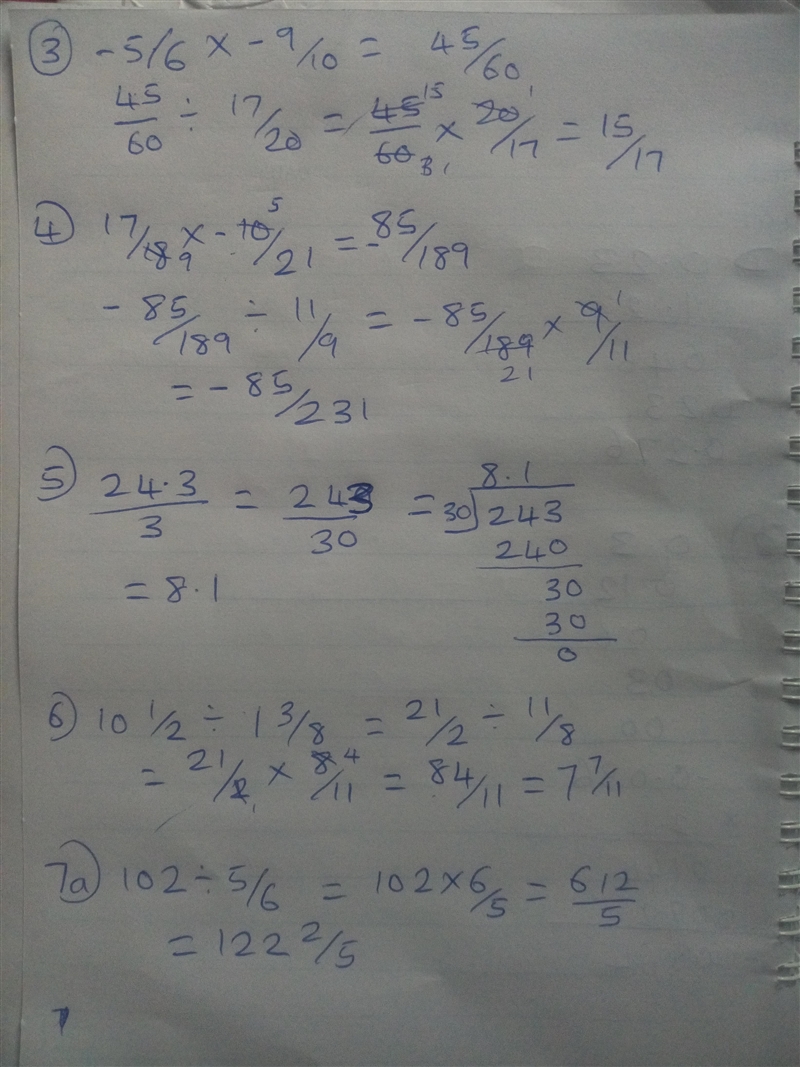 ③ -5/6 × -9/10 = 45/60
45/60 ÷ 17/20 = 45 15/60 3 1 × 20 1/17 = 15/17
④ 17/18 9 × -10 5/21 = -85/189
-85/189 ÷ 11/9 = -85/189 21 × 9 1/11
= -85/231
5) 24.3/3 = 243/30 = 30)243 8.1
= 8.1
240
30
30
0
6) 10 1/2 ÷ 1 3/8 = 21/2 ÷ 11/8
= 21/2 1 × 8 4/11 = 84/11 = 7 7/11
7a) 102 ÷ 5/6 = 102 × 6/5 = 612/5
= 122 2/5
7